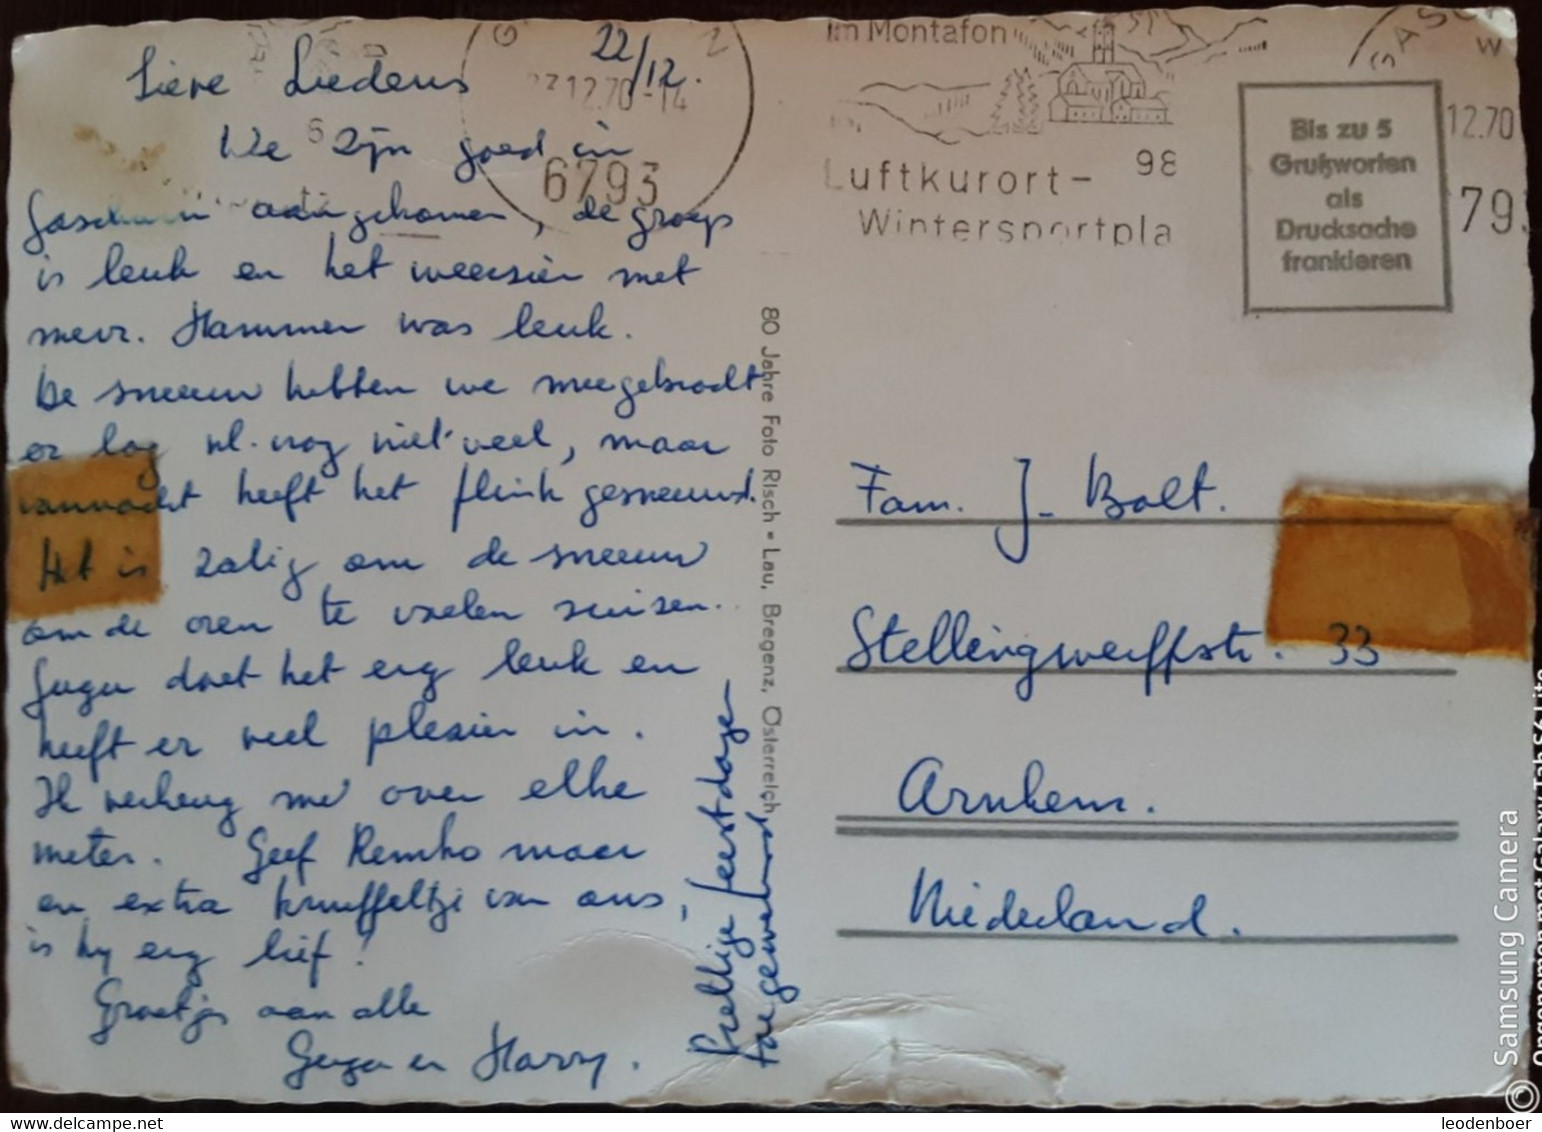 22/12.
Lieve Luedens
We zijn goed in
Gaschurn aangekomen, de groep
is leuk en het weerzien met
mevr. Hammer was leuk.
De sneeuw hebben we meegebracht
er lag nl. nog niet veel, maar
vannacht heeft het flink gesneeuwd.
Het is zalig om de sneeuw
om de oren te voelen suizen.
Guga doet het erg leuk en
heeft er veel plezier in.
Ik verheug me over elke
meter. Geef Remko maar
en extra knuffeltje van ons,
is hy erg lief!
Groetjes aan alle
Guga en Harry.
Prettige feestdagen
toegewenst
27.12.70-14
6793
im Montafon
98
Luftkurort-
Wintersportpla
GASCH
W
12.70
793
Bis zu 5
Grußworten
als
Drucksache
frankieren
80 Jahre Foto Risch-Lau, Bregenz, Österreich
Fam. J. Bolt.
Stellingwerffstr. 33
Arnhem.
Niederland.
© Samsung Camera
Opgenomen met Galaxy Tab S6 Lite
leodenboer